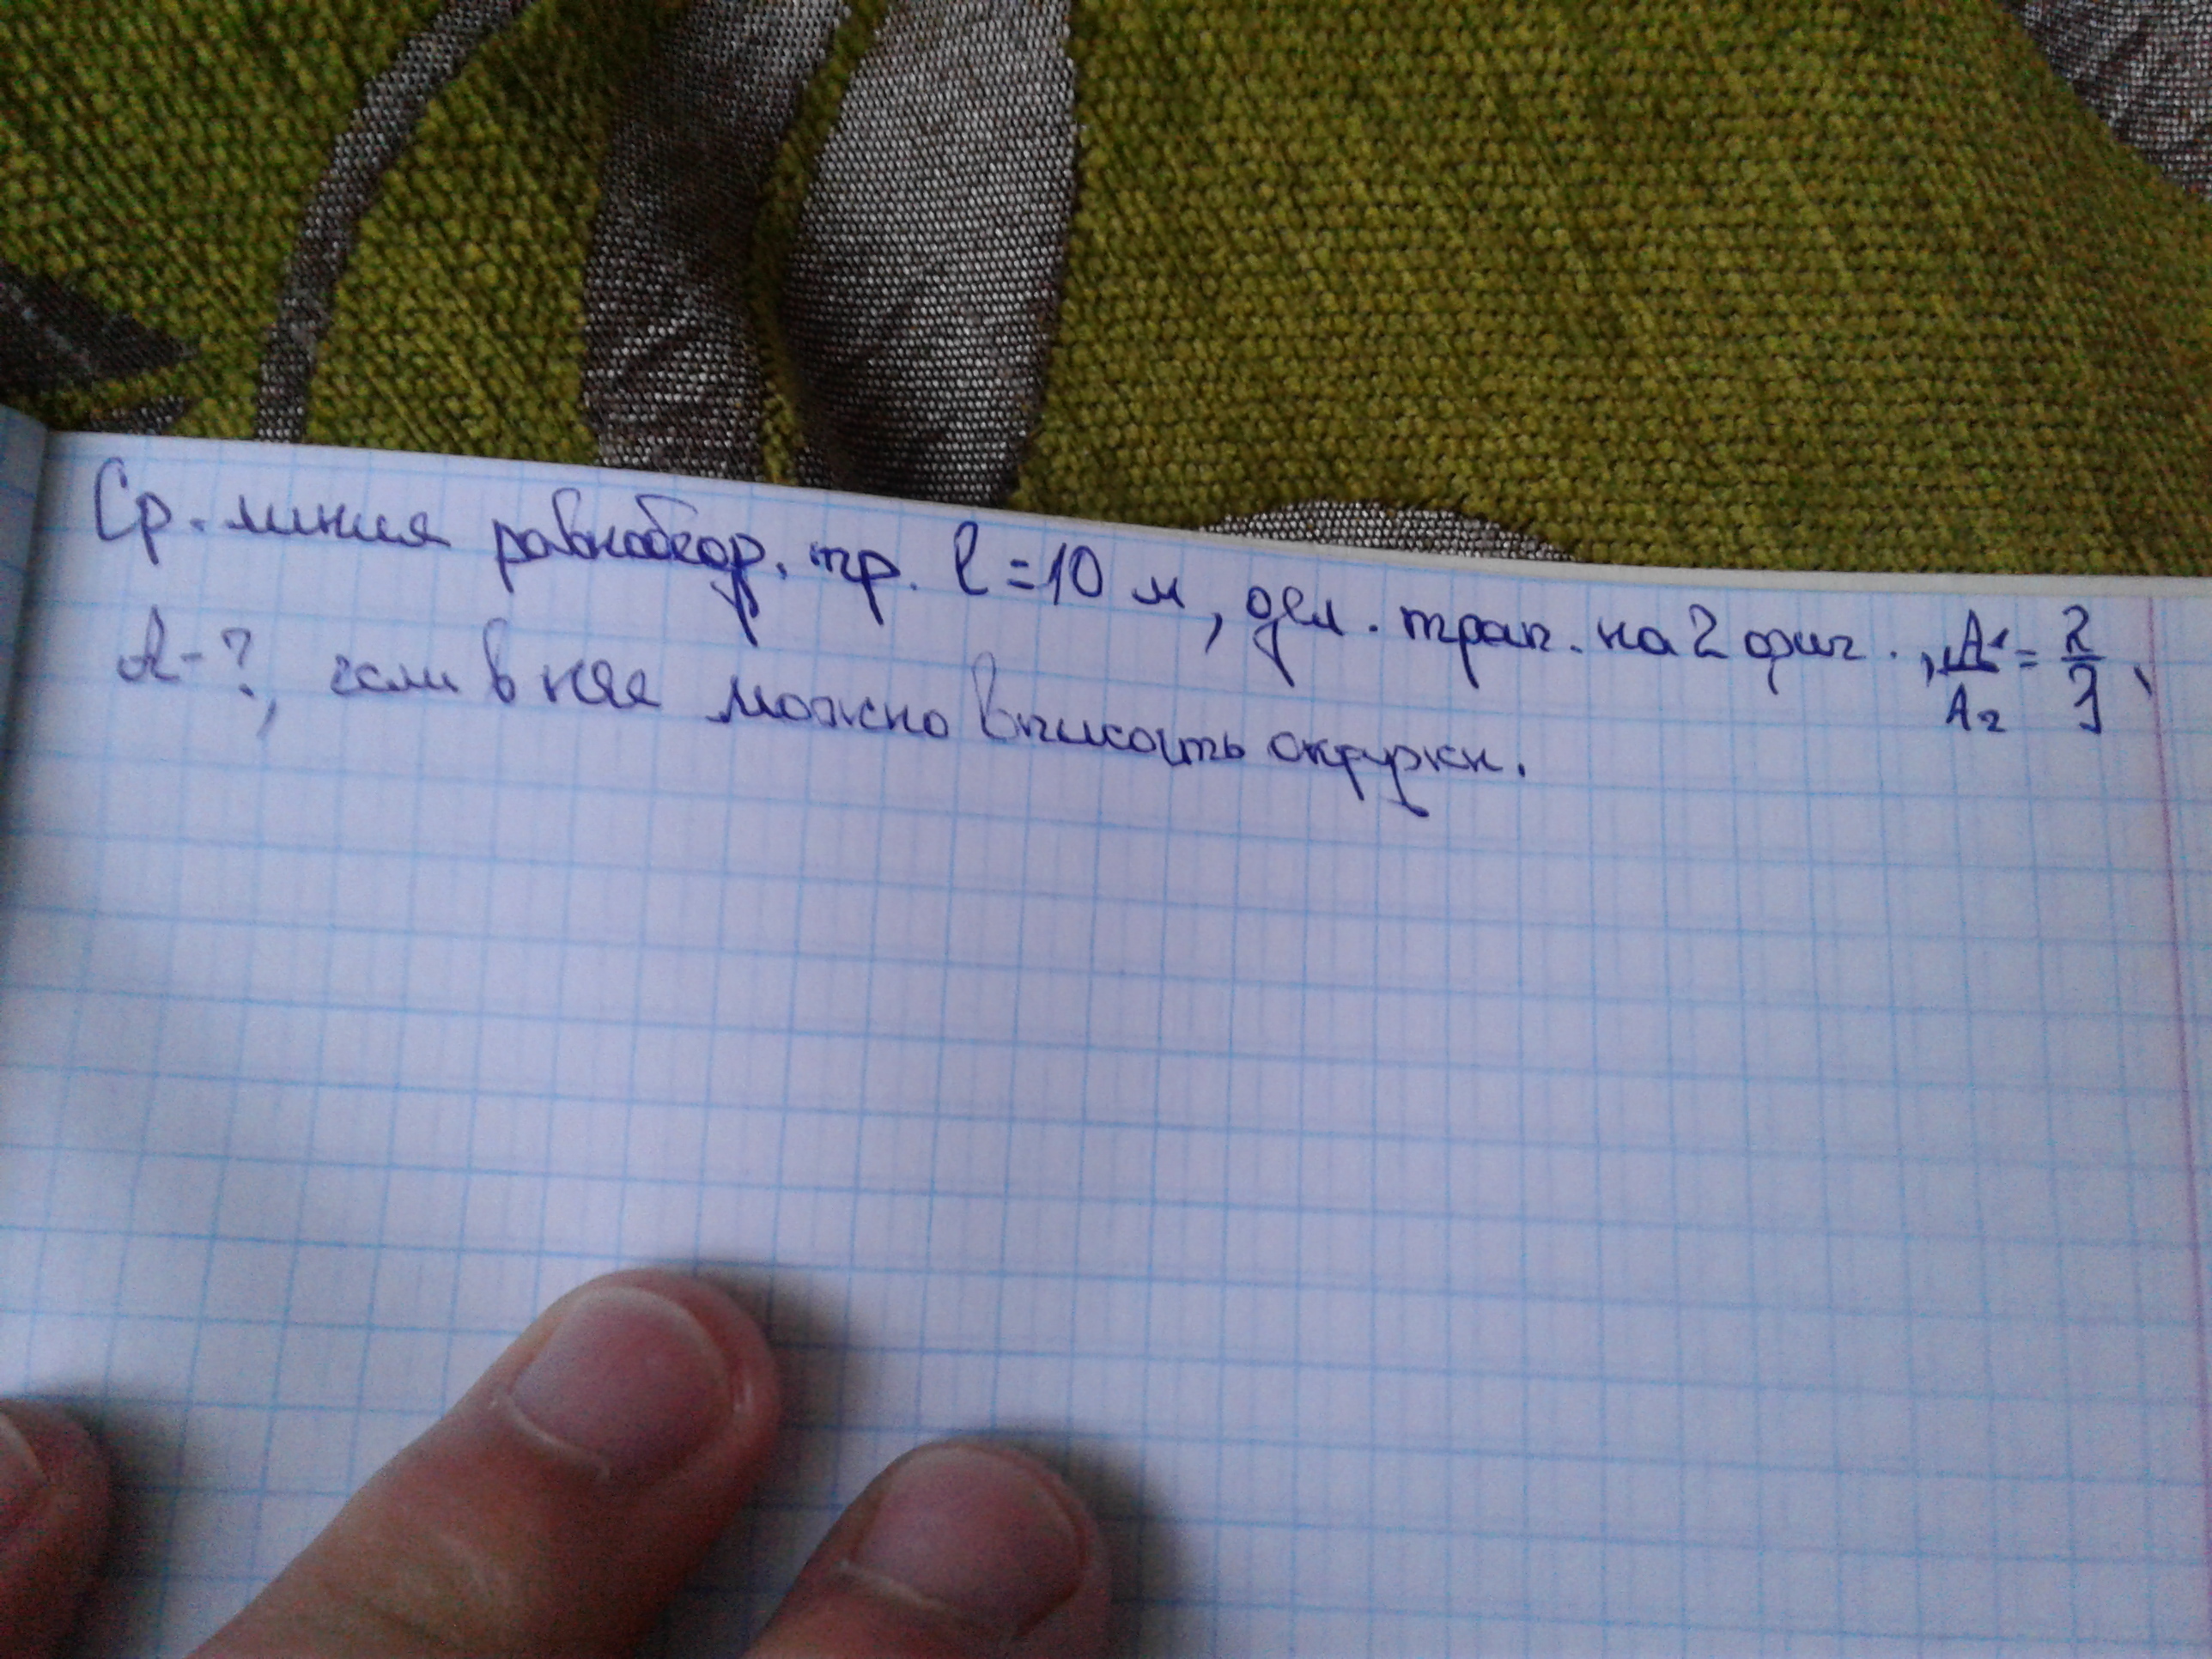 Ср. линия равнобедр. тр. l = 10 м, дел. трап. на 2 фиг., A1/A2 = 2/3,
A - ?, если в нея можно вписать окружн.